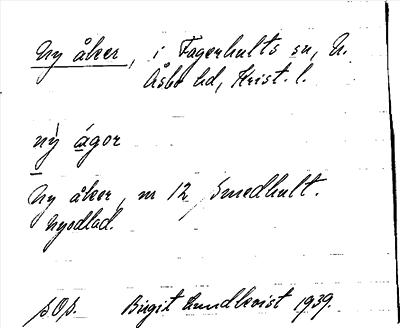 Ny åker, i Fagerhults sn, N.
Åsbo hd, Krist. l.
nỳ ágor
Ny åker, nr 12 Smedhult.
Nyodlad.
Birgit Lundkvist 1939.